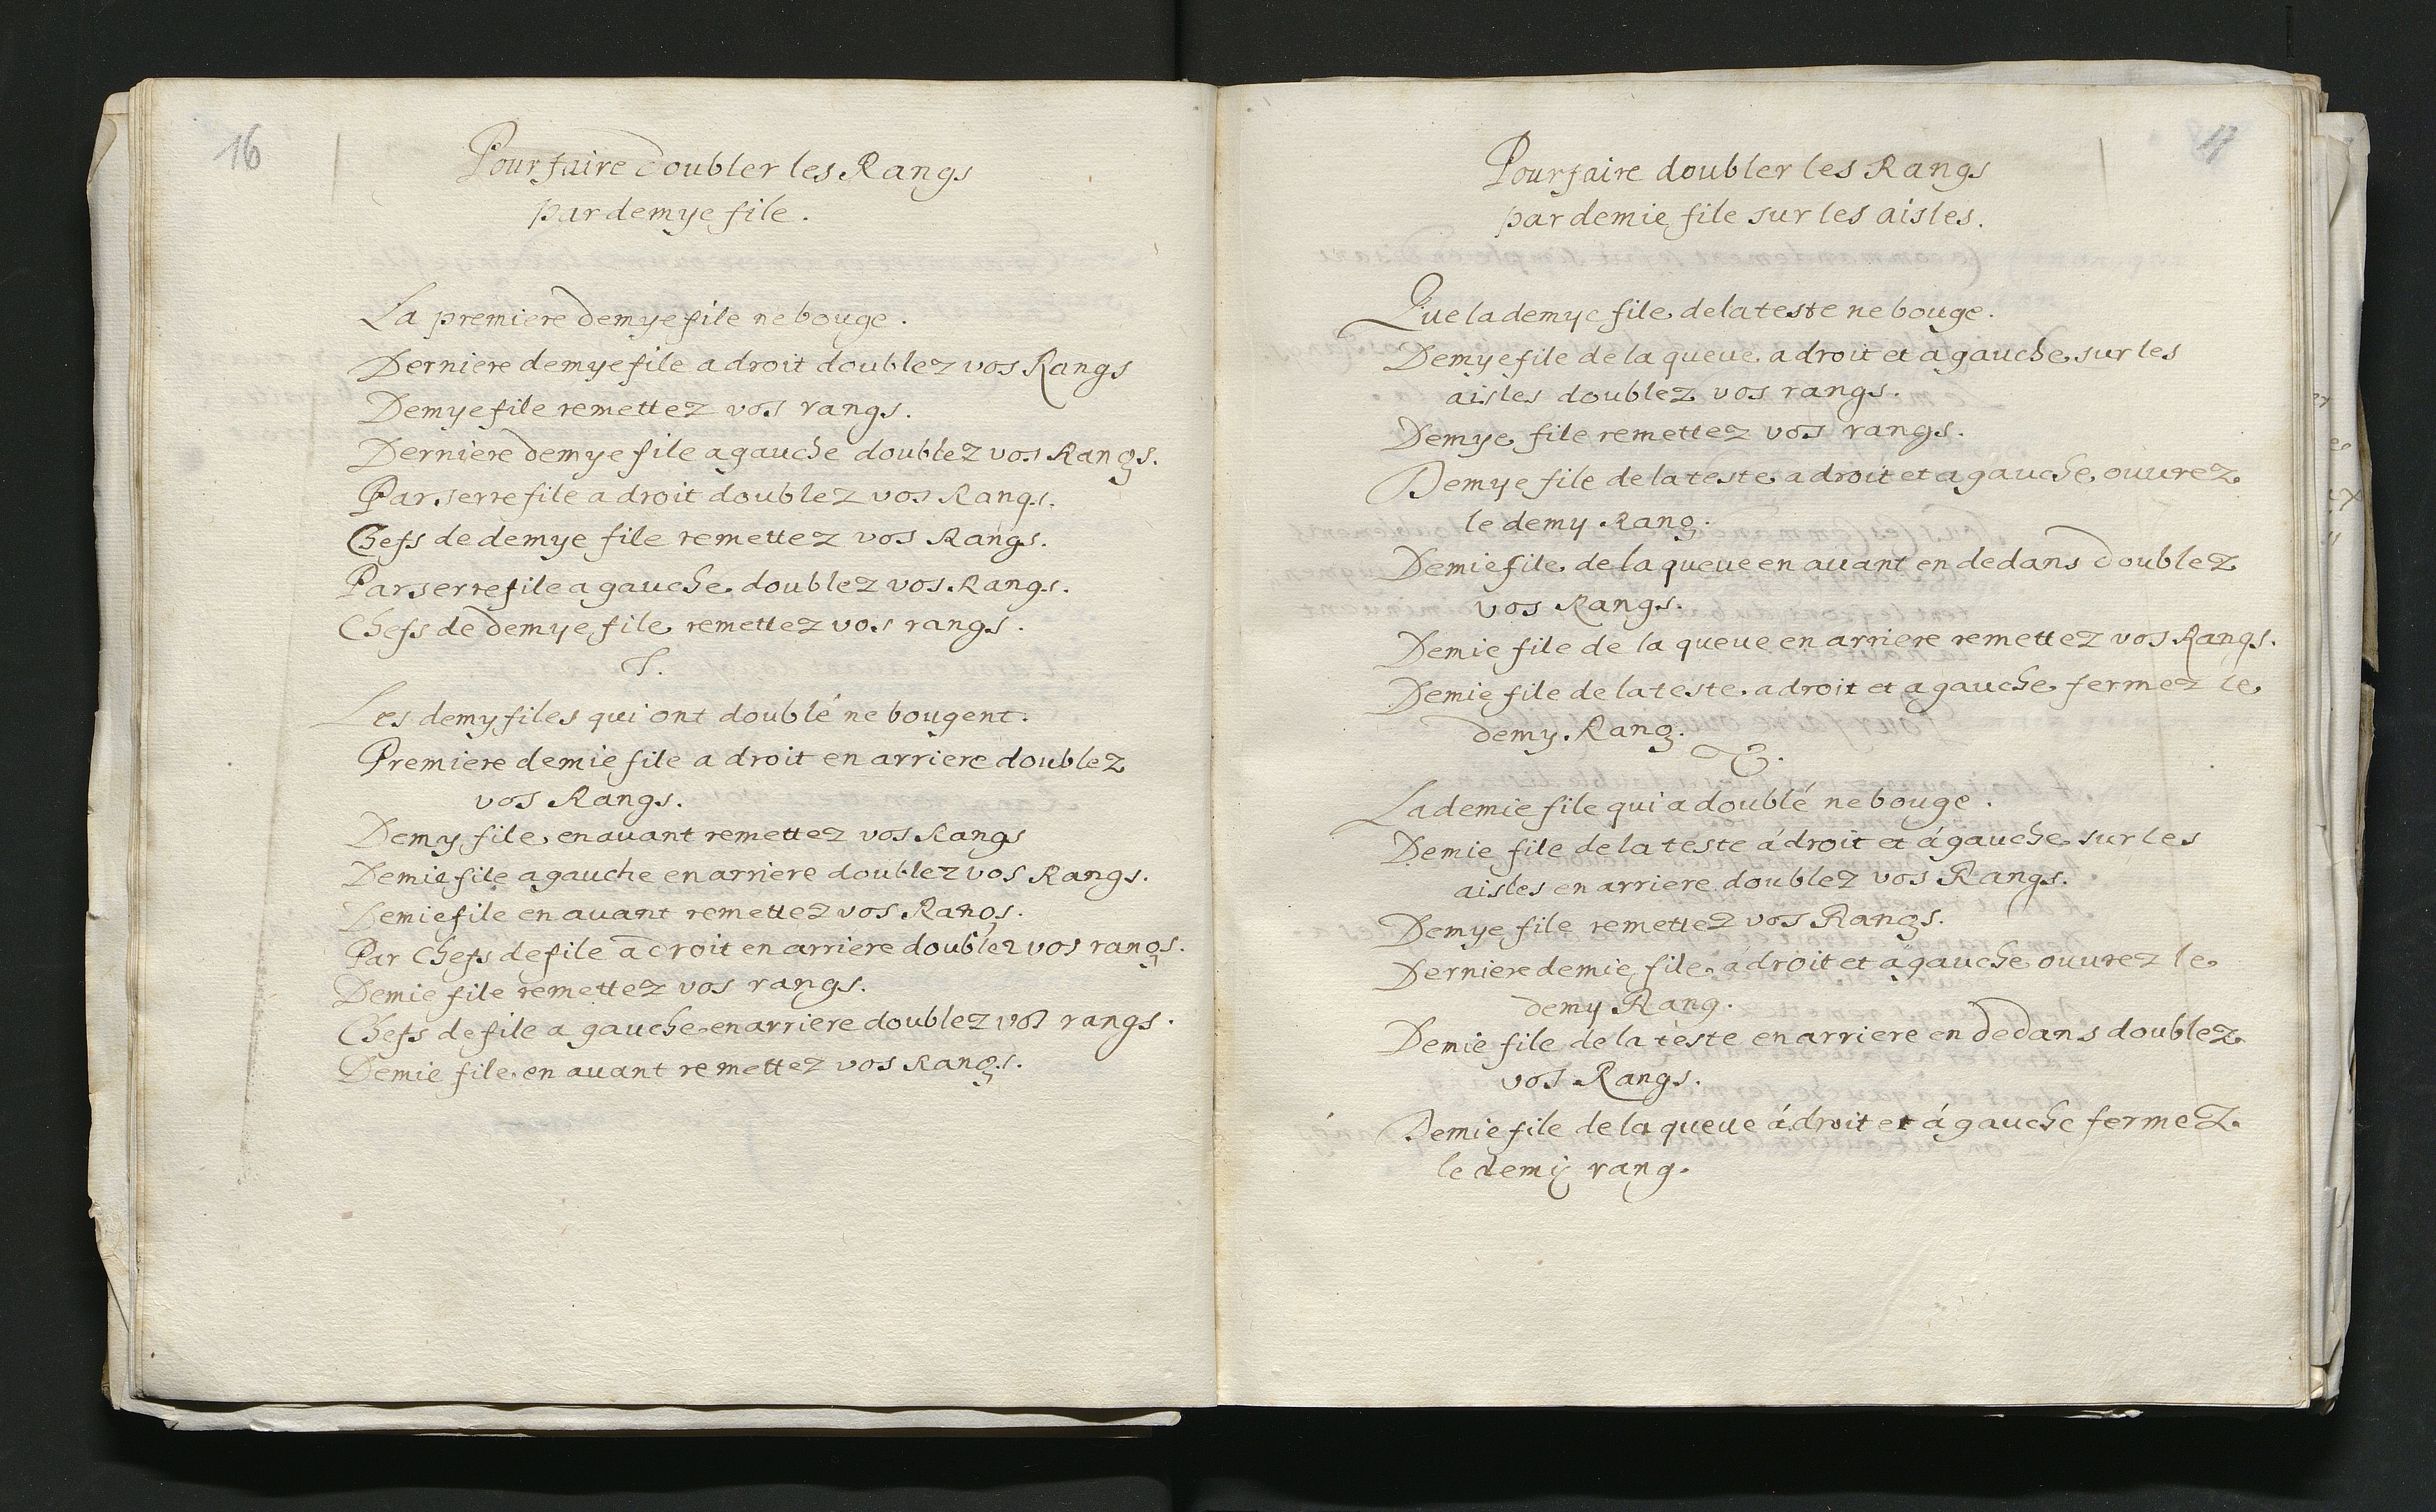 16
Pour faire doubler les Rangs
par demye file.
La premiere demye file ne bouge.
Derniere demye file a droit doublez vos Rangs
Demye file remettez vos rangs.
Derniere demye file a gauche doublez vos Rangs.
Par serre file a droit doublez vos Rangs.
Chefs de demye file remettez vos Rangs.
Par serre file a gauche doublez vos Rangs.
Chefs de demye file remettez vos rangs.
T.
Les demy files qui ont doublé ne bougent.
Premiere demie file a droit en arriere doublez
vos Rangs.
Demy file en auant remettez vos Rangs
Demie file a gauche en arriere doublez vos Rangs.
Demie file en auant remettez vos Rangs.
Par Chefs de file a droit en arriere doublez vos rangs.
Demie file remettez vos rangs.
Chefs de file a gauche en arriere doublez vos rangs.
Demie file en auant remettez vos Rangs.
17
Pour faire doubler les Rangs
par demie file sur les aisles.
Que la demye file de la teste ne bouge.
Demye file de la queue a droit et a gauche sur les
aisles doublez vos rangs.
Demye file remettez vos rangs.
Demye file de la teste a droit et a gauche ouurez
le demy Rang.
Demie file de la queue en auant en dedans doublez
vos Rangs.
Demie file de la queue en arriere remettez vos Rangs.
Demie file de la teste a droit et a gauche fermez le
demy Rang.
T.
La demie file qui a doublé ne bouge.
Demie file de la teste á droit et á gauche sur les
aisles en arriere doublez vos Rangs.
Demye file remettez vos Rangs.
Derniere demie file a droit et a gauche ouurez le
demy Rang.
Demie file de la teste en arriere en dedans doublez
vos Rangs.
Demie file de la queue á droit et á gauche fermez
le demy rang.